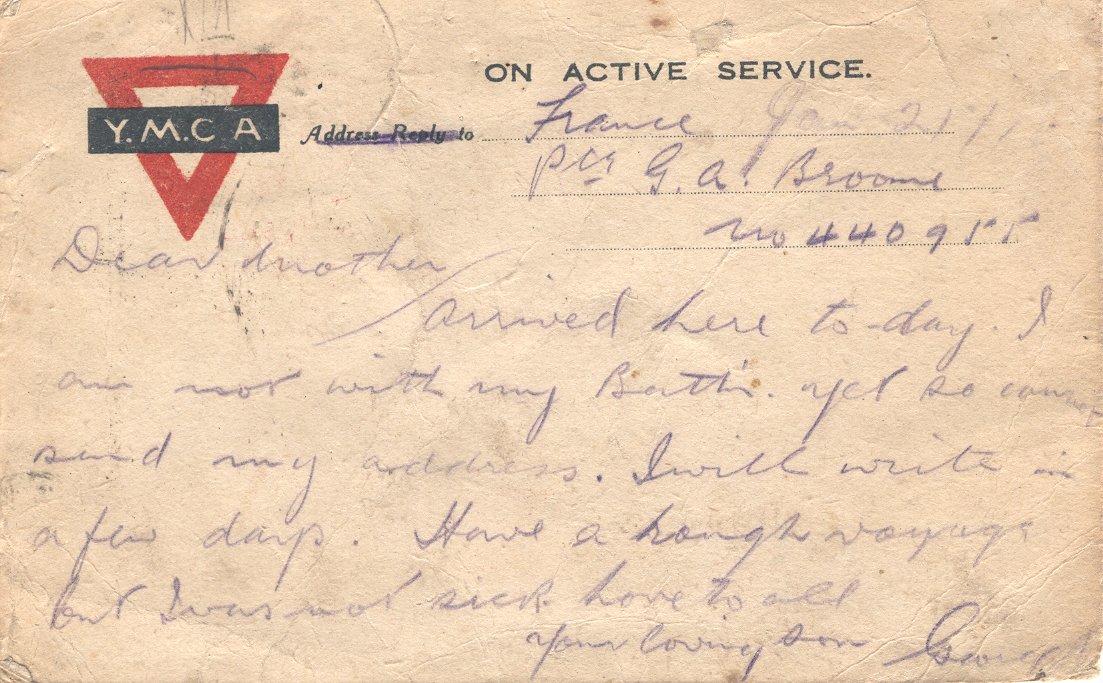 ON ACTIVE SERVICE.
Y.M.C.A
Address Reply to
France Jan 21
Pte G. A. Broome
No 440955
Dear Mother
Arrived here to-day. I
am not with my Batt'n. yet so cannot
send my address. I will write in
a few days. Have a rough voyage
but I was not sick. Love to all
Your loving son George